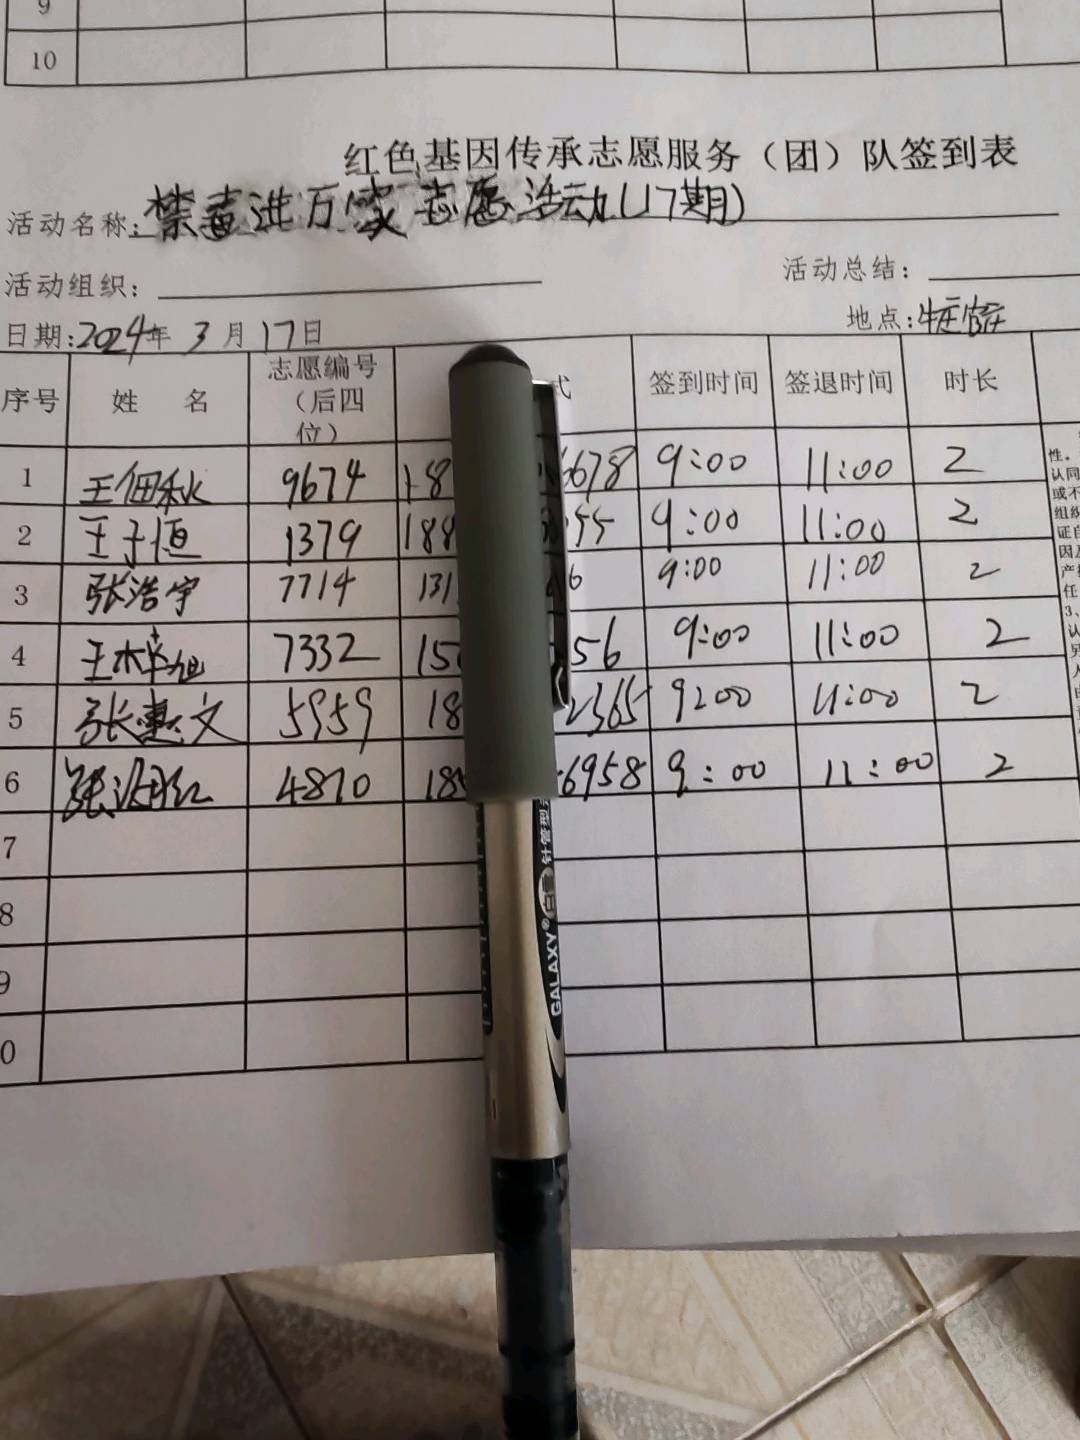 9
10
红色基因传承志愿服务（团）队签到表
活动名称：禁毒进万家志愿活动(17期)
活动组织：
活动总结：
日期：2024年 3月 17日
地点：
序号 姓 名 志愿编号（后四位） 式 签到时间 签退时间 时长
1 王佃秋 9674 18 6678 9:00 11:00 2
2 王子恒 1379 188 55 9:00 11:00 2
3 张浩宇 7714 131 6 9:00 11:00 2
4 7332 15 56 9:00 11:00 2
5 张惠文 5959 18 2365 9:00 11:00 2
6 张 4870 18 6958 9:00 11:00 2
7
8
9
0
性。
认同
或不
组织
证自
因及
产
任
3、
认
另
人
GALAXY® 白雪 针管型